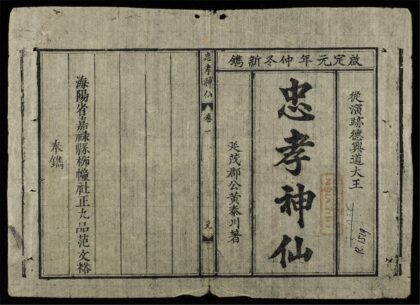 啟定元年仲冬新鐫
從演跡德興道大王
忠孝神仙
延茂郡公黃泰川著
忠孝神仙 卷一 元
海陽省嘉祿縣柳幢社正品范文裕
奉鐫